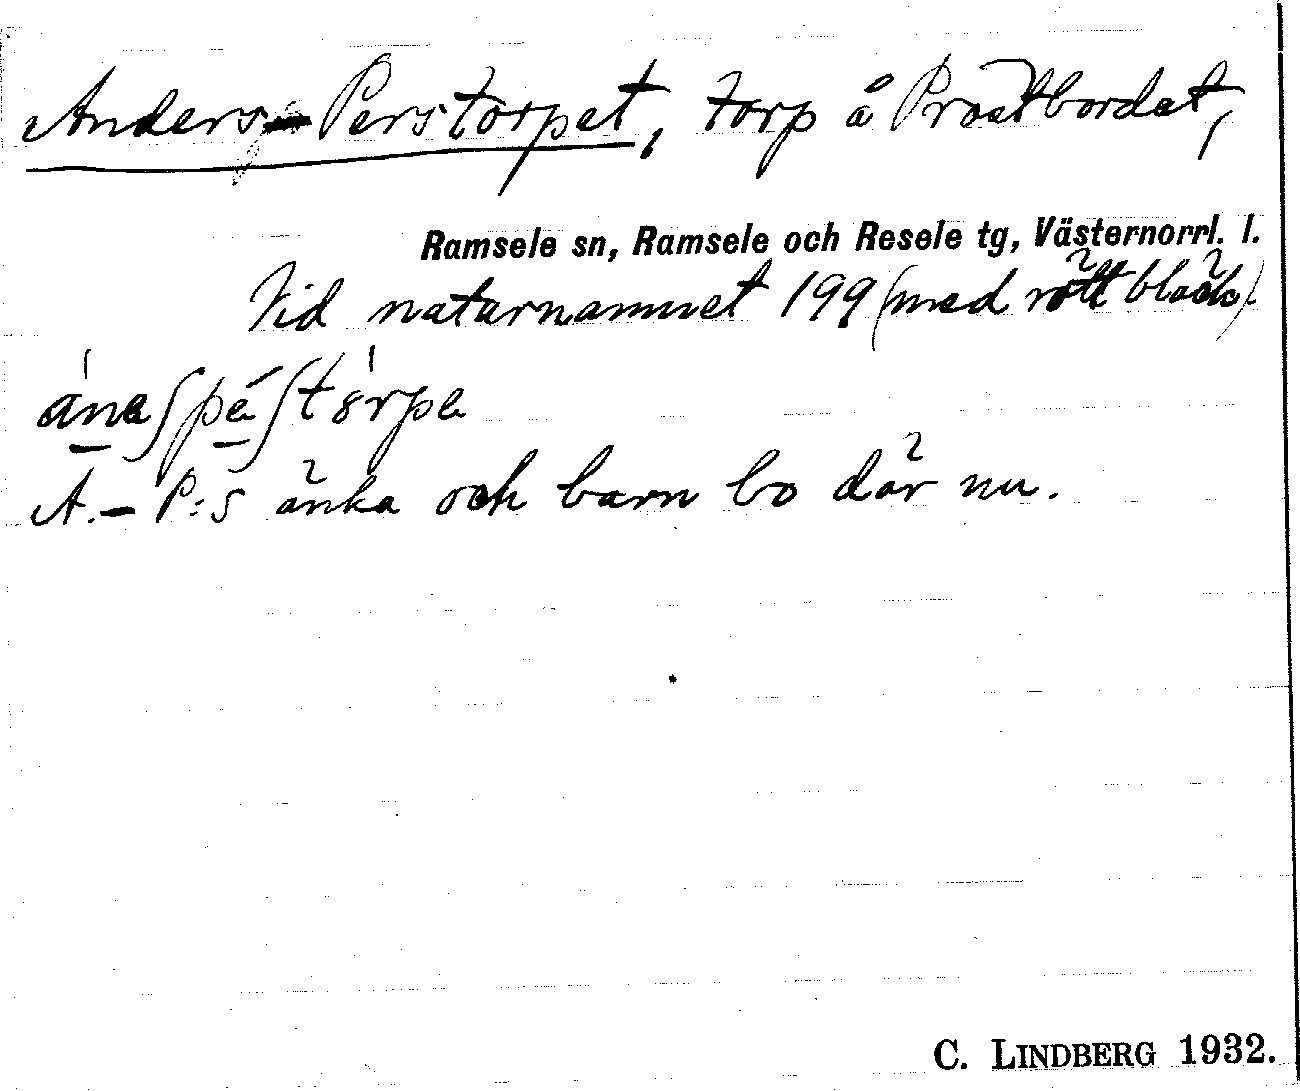 Anders-Perstorpet, torp å Prästbordet,
Ramsele sn, Ramsele och Resele tg, Västernorrl. l.
Vid naturnamnet 199 (med rött bläck).
A.-P:s änka och barn bo där nu.
C. LINDBERG 1932.